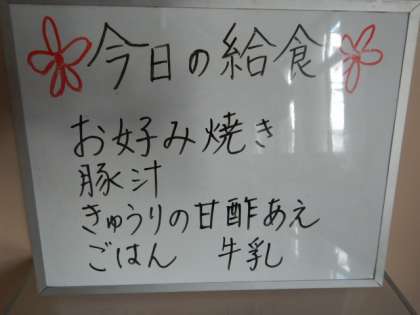 今日の給食
お好み焼き
豚汁
きゅうりの甘酢あえ
ごはん 牛乳